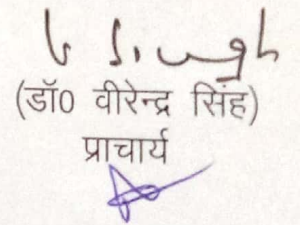 V Singh
(डॉ0 वीरेन्द्र सिंह)
प्राचार्य